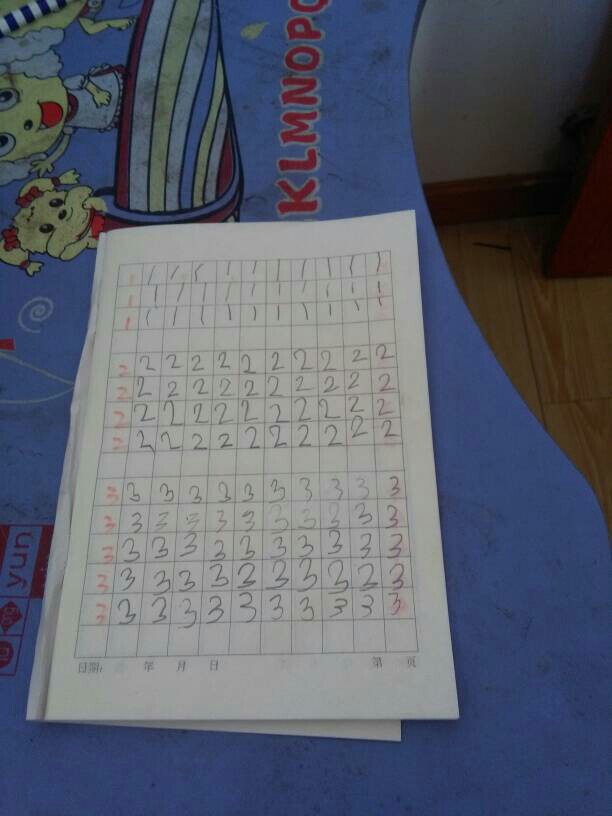 KLMNOP
1 1 1 1 1 1 1 1 1 1 1
1 1 1 1 1 1 1 1 1 1 1
1 1 1 1 1 1 1 1 1 1 1
2 2 2 2 2 2 2 2 2 2 2
2 2 2 2 2 2 2 2 2 2 2
2 2 2 2 2 2 2 2 2 2 2
2 2 2 2 2 2 2 2 2 2 2
3 3 3 3 3 3 3 3 3 3 3
3 3 3 3 3 3 3 3 3 3 3
3 3 3 3 3 3 3 3 3 3 3
3 3 3 3 3 3 3 3 3 3 3
3 3 3 3 3 3 3 3 3 3 3
日期: 年 月 日 第 页
yun